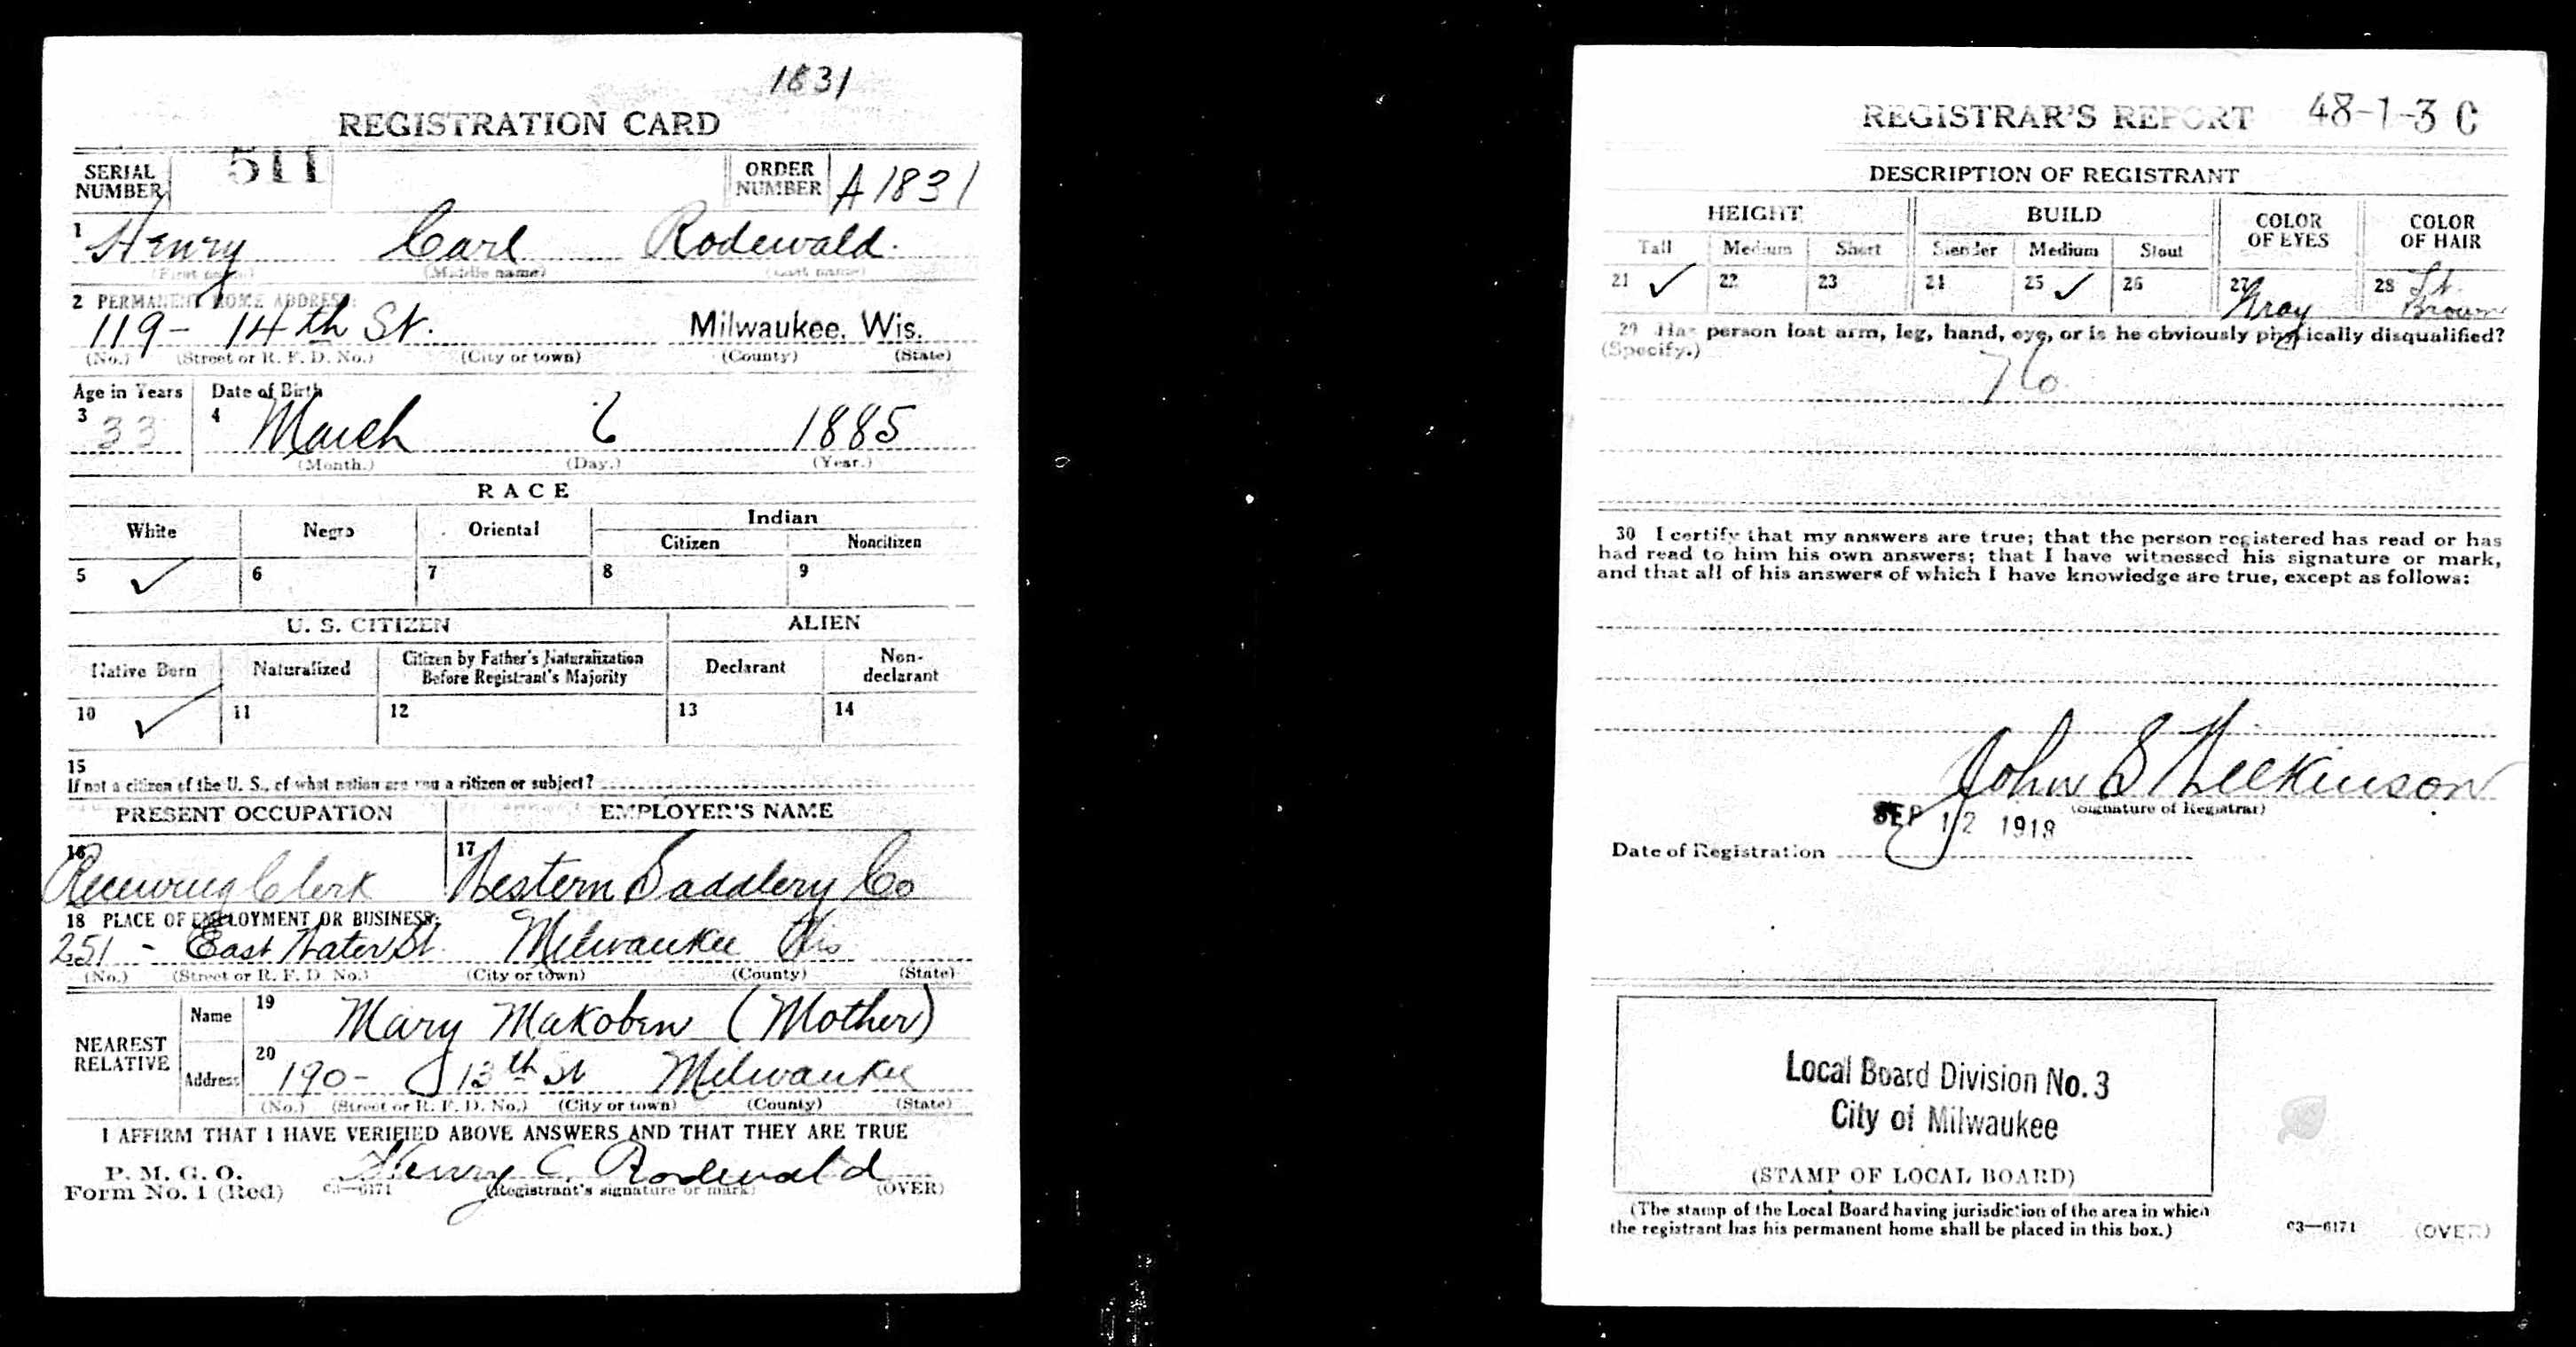 1831
REGISTRATION CARD
SERIAL NUMBER 511 ORDER NUMBER A1831
1 Henry Carl Rodewald.
(First name) (Middle name) (Last name)
2 PERMANENT HOME ADDRESS:
119- 14th St. Milwaukee, Wis.
(No.) (Street or R. F. D. No.) (City or town) (County) (State)
Age in Years Date of Birth
3 33 4 March 6 1885
(Month.) (Day.) (Year.)
RACE
White Negro Oriental Indian
Citizen Noncitizen
5 ✓ 6 7 8 9
U. S. CITIZEN ALIEN
Native Born Naturalized Citizen by Father's Naturalization Before Registrant's Majority Declarant Non-declarant
10 ✓ 11 12 13 14
15
If not a citizen of the U. S., of what nation are you a citizen or subject?
PRESENT OCCUPATION EMPLOYER'S NAME
16 Receiving Clerk 17 Western Saddlery Co
18 PLACE OF EMPLOYMENT OR BUSINESS:
251 - East Water St. Milwaukee Wis
(No.) (Street or R. F. D. No.) (City or town) (County) (State)
NEAREST RELATIVE
Name 19 Mary Makoben (Mother)
Address 20 190- 13th St Milwaukee
(No.) (Street or R. F. D. No.) (City or town) (County) (State)
I AFFIRM THAT I HAVE VERIFIED ABOVE ANSWERS AND THAT THEY ARE TRUE
P. M. G. O.
Form No. 1 (Red) 03—6171 Henry C. Rodewald
(Registrant's signature or mark) (OVER)
REGISTRAR'S REPORT 48-1-3 C
DESCRIPTION OF REGISTRANT
HEIGHT BUILD COLOR OF EYES COLOR OF HAIR
Tall Medium Short Slender Medium Stout
21 ✓ 22 23 24 25 ✓ 26 27 Gray 28 Lt. Brown
29 Has person lost arm, leg, hand, eye, or is he obviously physically disqualified?
(Specify.)
No
30 I certify that my answers are true; that the person registered has read or has
had read to him his own answers; that I have witnessed his signature or mark,
and that all of his answers of which I have knowledge are true, except as follows:
John S Wilkinson
(Signature of Registrar)
SEP 12 1918
Date of Registration
Local Board Division No. 3
City of Milwaukee
(STAMP OF LOCAL BOARD)
(The stamp of the Local Board having jurisdiction of the area in which
the registrant has his permanent home shall be placed in this box.)
03—6171 (OVER)